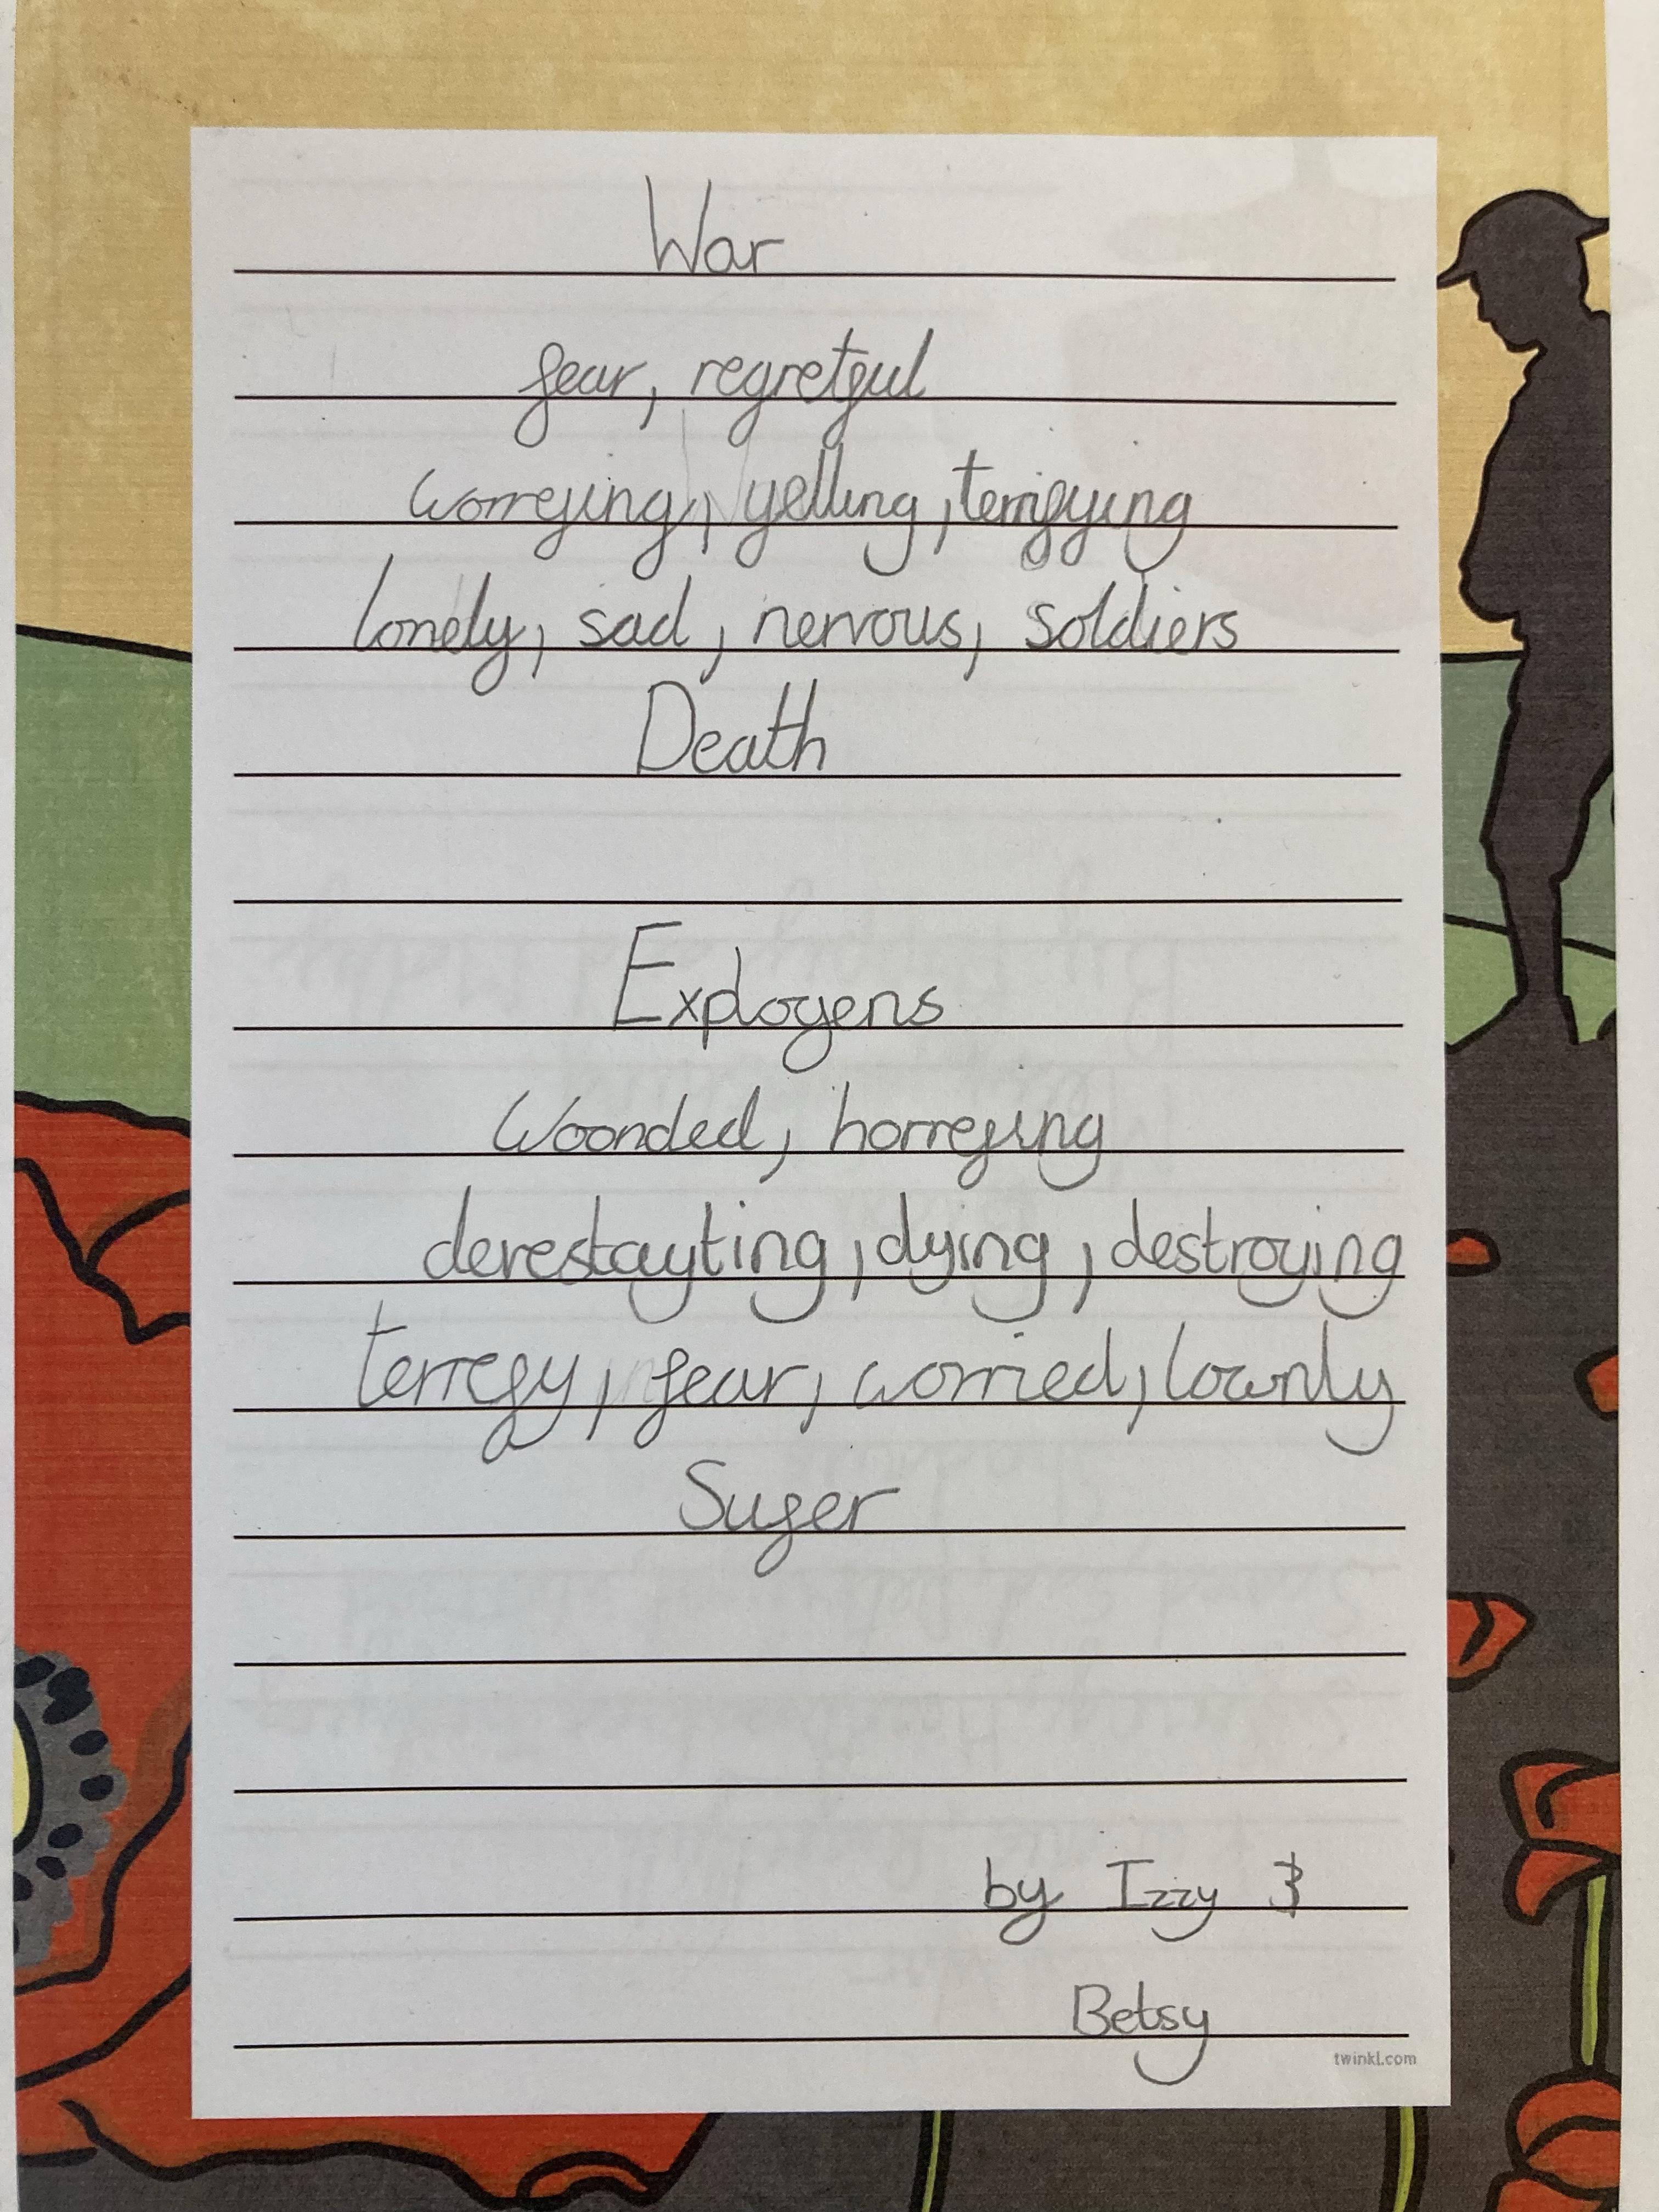 War
fear, regretful
worreying, yelling, terrifying
lonely, sad, nervous, soldiers
Death
Exployens
Woonded, horreying
derestayting, dying, destroying
terrefy, fear, worried, lownly
Sufer
by Izzy &
Betsy
twinkl.com